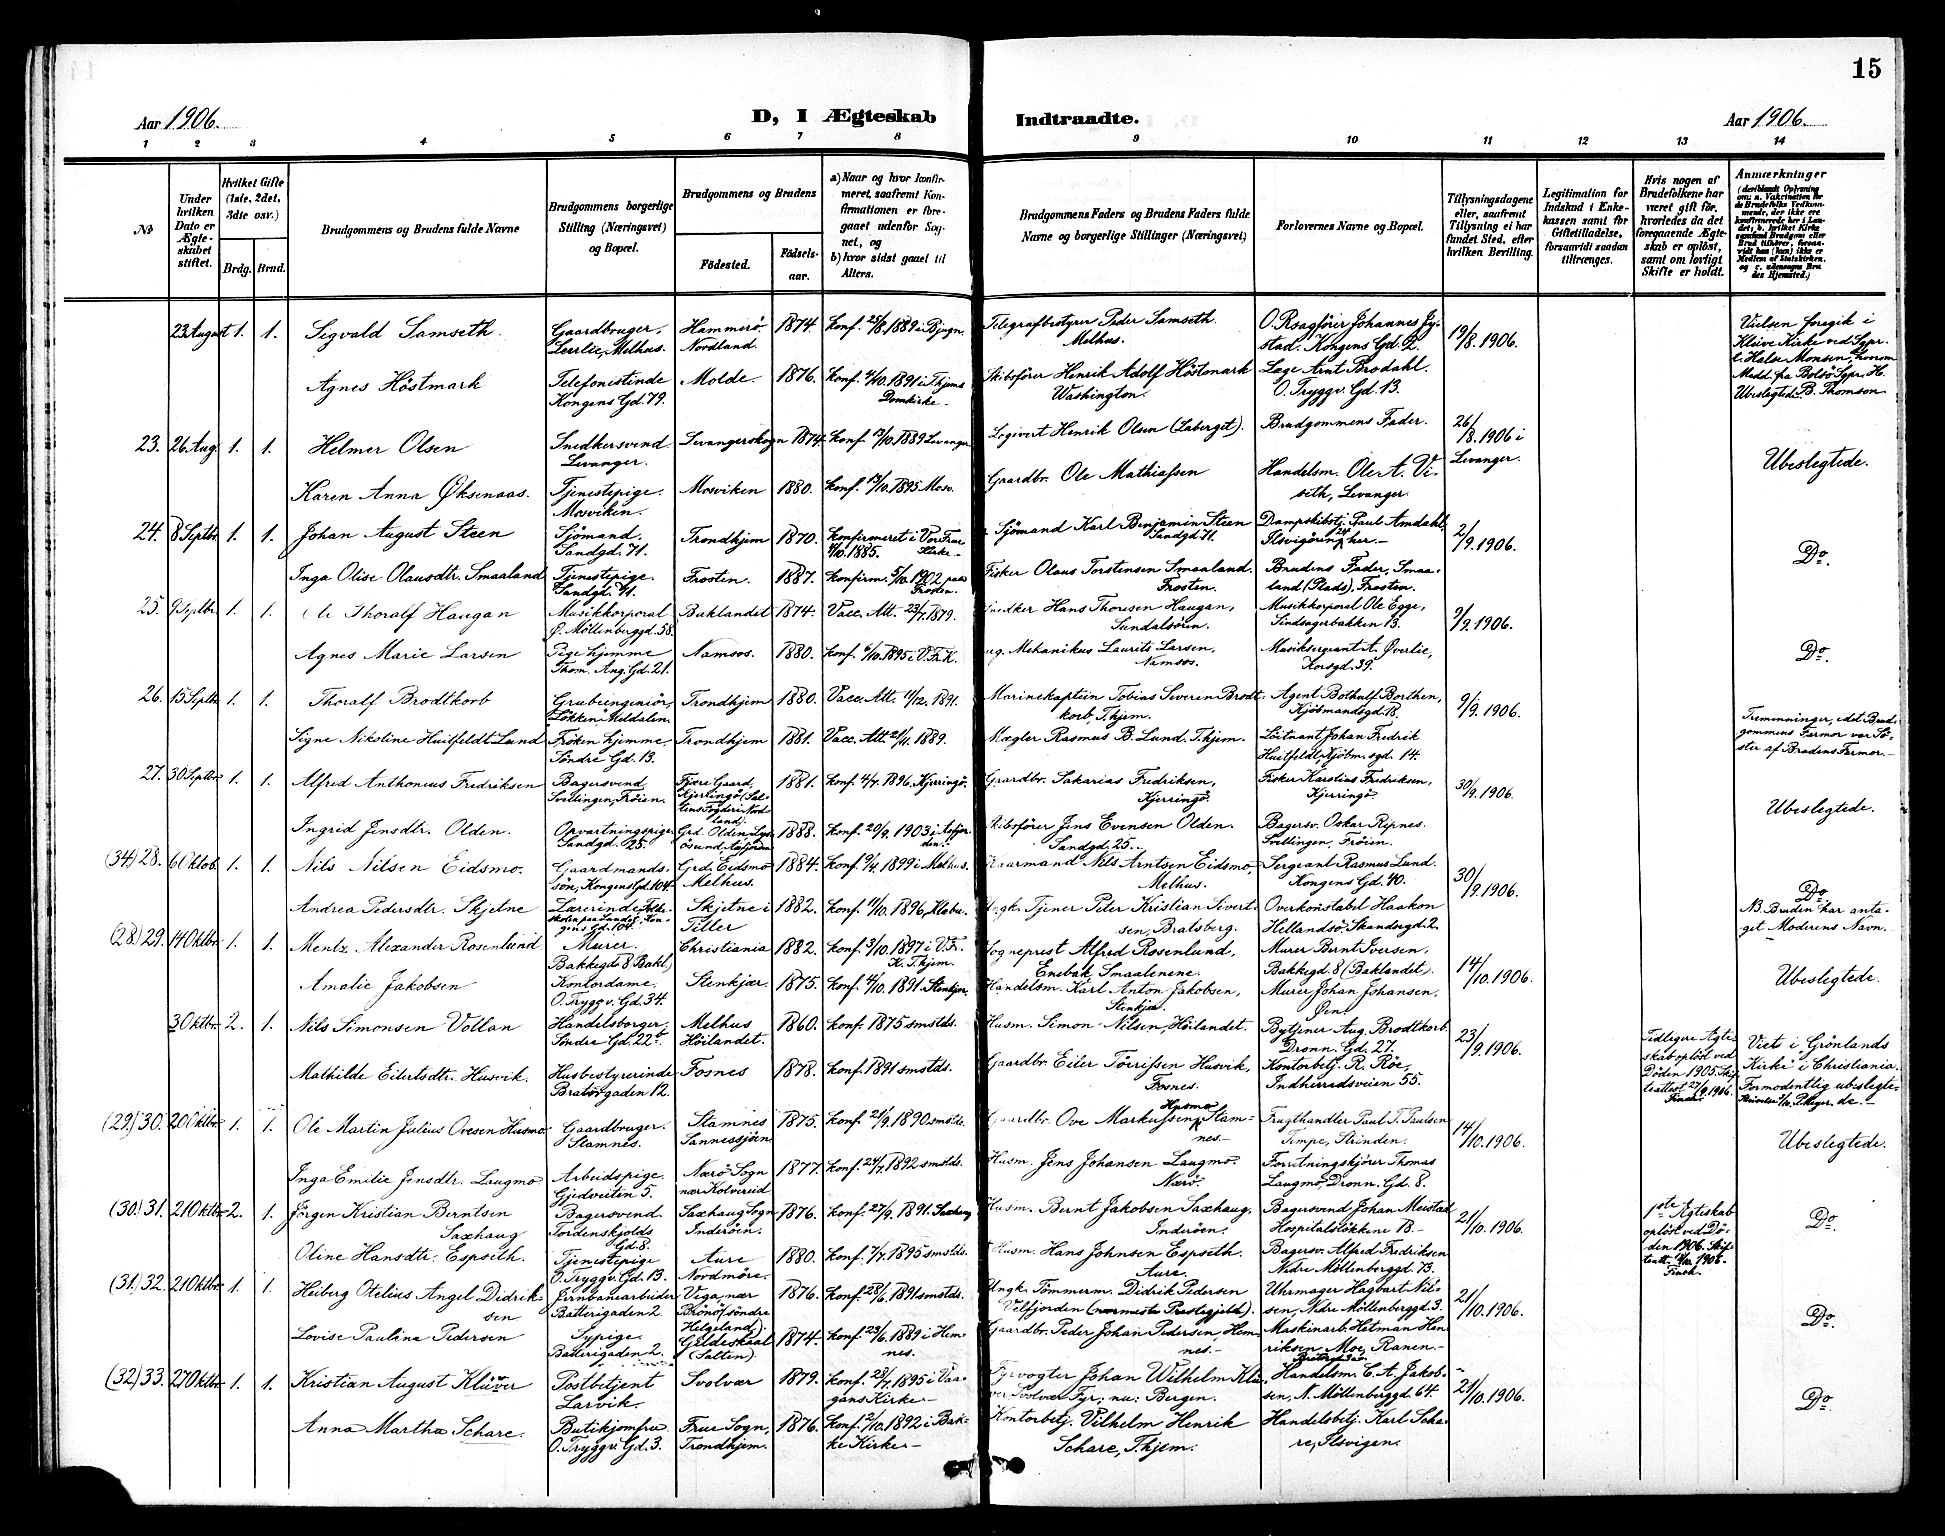 15
Aar 1906.
D, I Ægteskab
Indtraadte.
Aar 1906.
1 2 3 4 5 6 7 8 9 10 11 12 13 14
No
Under hvilken Dato er Ægteskabet stiftet.
Hvilket Gifte (1ste, 2det, 3die osv.)
Brdg. Brud.
Brudgommens og Brudens fulde Navne
Brudgommens borgerlige Stilling (Næringsvei) og Bopæl.
Brudgommens og Brudens
Födested.
Födselsaar.
a) Naar og hvor konfirmeret, saafremt Konfirmationen er foregaaet udenfor Sognet, og
b) hvor sidst gaaet til Alters.
Brudgommens Faders og Brudens Faders fulde Navne og borgerlige Stillinger (Næringsvei)
Forlovernes Navne og Bopæl.
Tillysningsdagene eller, saafremt Tillysning ei har fundet Sted, efter hvilken Bevilling.
Legitimation for Indskud i Enkekassen samt for Giftetilladelse, forsaavidt saadan tiltrænges.
Hvis nogen af Brudefolkene har været gift för, hvorledes da det foregaaende Ægteskab er oplöst, samt om lovligt Skifte er holdt.
Anmærkninger
23 August 1. 1. Sigvald Samseth. Gaardbruger, Leerlie, Melhus. Hammerö, Nordland. 1874 Konf. 25/8. 1889 i Bjugn. Telegrafbestyrer Peder Samseth. Melhus. O.Rsagförer Johannes Jystad. Kongens Gd. 2. 19/8. 1906. Vielsen foregik i Kleive Kirke ved Sgpr.
Agnes Höstmark Telefonistinde Kongens Gd. 79. Molde. 1876. Konf. 4/10. 1891 i Thjems Domkirke.- Skibsförer Henrik Adolf Höstmark Washington. Læge Arnt Brodahl. O. Tryggv. Gd. 13. Ubeslegtede B. Thomson
23. 26 Aug. 1. 1. Helmer Olsen Snedkersvend Levanger. Levangerskogn 1874. Konf. 13/10. 1889 Levanger. Logivert Henrik Olsen (Laberget). Brudgommens Fader. 26/8. 1906 i Levanger. Ubeslegtede.
Karen Anna Øksenaas. Tjenestepige. Mosviken. Mosviken 1880. Konf. 13/10. 1895 Mosv. Gaardbr. Ole Mathiassen Handelsm. Ole A. Viseth, Levanger.
24. 8 Septbr. 1. 1. Johan August Steen Sjömand. Sandgd. 71. Trondhjem 1870. Konfirmeret i Vor Frue Kirke.- 4/10. 1885. Sjömand Karl Benjamin Steen Sandgd. 71. Dampskibstj. Paul Amdahl, Ilsvigören 24 her.- 2/9. 1906. Do.
Inga Olise Olausdtr. Smaaland Tjenestepige. Sandgd. 71. Frosten. 1887. Konfirm. 5/10. 1902 paa Frosten. Fisker Olaus Torstensen Smaaland. Frosten. Brudens Fader, Smaaland (Plads), Frosten.
25. 9 Septbr. 1. 1. Ole Thoralf Haugan Musikkorporal Ø. Möllenberggd. 58. Baklandet 1874. Vacc. Att. 23/7. 1879. Snedker Hans Thoresen Haugan, Sundalsören. Musikkorporal Ole Egge, Sindsagerbakken 13. 9/9. 1906. Do.
Agnes Marie Larsen Pige hjemme Thom. Ang. Gd. 21. Namsos. 1880. Konf. 6/10. 1895 i V.Fr.K. Mekanikus Laurits Larsen, Namsos. Musiksergeant A. Øverlie, Korsgd. 39.
26. 15 Septbr. 1. 1. Thoralf Brodtkorb Grubeingeniör, Lökken, Meldalen. Trondhjem 1880. Vacc. Att. 11/12. 1891. Marinekaptein Tobias Severin Brodtkorb, T.hjem. Agent Bothulf Borthen, Kjöbmandsgd. 18. 9/9. 1906. Tremenninger, idet Brudgommens Farmor var Söster af Brudens Farmor.-
Signe Nikoline Huitfeldt Lund Fröken hjemme, Söndre Gd. 13. Trondhjem 1881. Vacc. Att. 21/11. 1889. Mægler Rasmus B. Lund, T.hjem. Löitnant Johan Fredrik Huitfeldt, Kjöbm. sgd. 14.
27. 30 Septbr. 1. 1. Alfred Anthonius Fredriksen Bagersvend, Svellingen, Fröien. Fjære Gaard, Kjerringö (Saltens Fogderi Nordland). 1881. Konf. 4/7. 1896. Kjerringö. Gaardbr. Sakarias Fredriksen, Kjerringö. Fisker Karolius Fredriksen, Kjerringö. 30/9. 1906. Ubeslegtede.
Ingrid Jensdtr. Olden. Opvartningspige. Sandgd. 25. Grd. Olden, Lysösund, Aafjorden 1888. Konf. 20/9. 1903 i Aafjorden. Skibsförer Jens Evensen Olden. Sandgd. 25. Bagersv. Oskar Ripnes. Svellingen, Fröien.
(34) 28. 6 Oktob. 1. 1. Nils Nilsen Eidsmo. Gaardmandssön, Kongens Gd. 104. Grd. Eidsmo Melhus. 1884. Konf. 9/4. 1899 i Melhus. Kaarmand Nils Arntsen Eidsmo, Melhus. Sergeant Rasmus Lund. Kongens Gd. 40. 30/9. 1906. Do
Andrea Pedersdtr. Skjetne Lærerinde Folkeskolen paa Landet, Kongens Gd. 104. Skjetne i Tiller 1882. Konf. 11/10. 1896, Klæbu. Ungk. Tjener Peter Kristian Sivertsen, Bratsberg. Overkonstabel Haakon Hellandsö, Skansegd. 2. NB. Bruden har antaget Moderens Navn.-
(28) 29. 14 Oktbr. 1. 1. Mentz Alexander Rosenlund Murer. Bakkegd. 8 (Bakl.) Christiania 1882. Konf. 3/10. 1897 i V.Fr.K. T.hjem. Sogneprest Alfred Rosenlund, Enebak, Smaalenene. Murer Bernt Iversen, Bakkegd. 8 (Baklandet). 14/10. 1906. Ubeslegtede.
Amalie Jakobsen Kontordame, O. Tryggv. Gd. 34. Stenkjær. 1875. Konf. 4/10. 1891 Stenkjær. Handelsm. Karl Anton Jakobsen, Stenkjær. Murer Johan Johansen,
3 Oktbr. 2. 1. Nils Simonsen Vollan Handelsborger, Söndre Gd. 22b. Melhus Höilandet. 1860. Konf. 1875 smstds. Husm. Simon Nilsen, Höilandet. Bytjener Aug. Brodtkorb. Dronn. Gd. 27. 23/9. 1906. Tidligere Ægteskab oplöst ved Döden 1905. Skifteattest 27/9. 1906. Finck. Viet i Grönlands Kirke i Christiania.
Mathilde Eilertsdtr. Husvik. Husbestyrerinde Bratörgaden 12. Fosnes 1878. Konf. 1891 smstds. Gaardbr. Eiler Törrissen Husvik, Fosnes. Kontorbetj. R. Röe, Indherredsveien 55. Formodentlig ubeslegtede.-
(29) 30. 20 Oktbr. 1. 1. Ole Martin Julius Ovesen Husmo Gaardbruger. Stamnes. Stamnes Sannessjöen 1875. Konf. 21/9. 1890 smstds. Gaardbr. Ove Markussen Husmo Stamnes.- Frugthandler Paul T. Paulsen Tempe, Strinden. 14/10. 1906. Ubeslegtede.
Inga Emilie Jensdtr. Laugmo. Arbeidspige. Gjedveiten 5. Nærö Sogn nær Kolvereid 1877. Konf. 24/7. 1892 smstds. Husm. Jens Johansen Laugmo. Nærö. Forretningskjörer Thomas Laugmo, Dronn. Gd. 8.
(30) 31. 21 Oktbr. 2. 1. Jörgen Kristian Berntsen Saxhaug Bagersvend. Tordenskjolds Gd. 8. Saxhaug Sogn Inderöen. 1876. Konf. 27/9. 1891. Saxhaug Husm. Bernt Jakobsen Saxhaug, Inderöen. Bagersvend Johan Meistad Hospitalslökkene 18.- 21/10. 1906. 1ste Ægteskab oplöst ved Döden 1906. Skifteatt. 1906. Finck. Do.
Oline Hansdtr. Espseth. Tjenestepige O. Tryggv. Gd. 13. Aure Nordmöre. 1880. Konf. 7/7. 1895 smstds. Husm. Hans Johnsen Espseth. Aure. Bagersv. Alfred Fredriksen Nedre Möllenberggd. 73.
(31) 32. 21 Oktbr. 1. 1. Heiberg Otelius Angel Didriksen Jernbanearbeider Batterigaden 2 Vega, nær Brönö (söndre Helgeland). 1876. Konf. 28/6. 1891 smstds. Ungk. Tömmerm. Didrik Pedersen Velfjorden (nærmeste Prestegjeld). Uhrmager Hagbart Nilsen, Nedre Möllenberggd. 3. 21/10. 1906. Do.
Lovise Pauline Pedersen Sypige. Batterigaden 2. Gildeskaal (Salten). 1874. Konf. 23/6. 1889 i Hemnes. Gaardbr. Peder Johan Pedersen, Hemnes.- Maskinarb. Hetman Henriksen Moe, Ranen.-
(32) 33. 27 Oktbr. 1. 1. Kristian August Klüwer Postbetjent Larvik. Svolvær 1879. Konf. 28/7. 1895 i Vaagans Kirke- Fyrvogter Johan Wilhelm Klüwer Svolvær Fyr, nu: Bergen. Handelsm. C. A. Jakobsen, N. Möllenberggd. 64. 21/10. 1906. Do.
Anna Martha Schare. Butikjomfru O. Tryggv. Gd. 3. Frue Sogn, Trondhjem. 1876. Konf. 2/10. 1892 i Bakke Kirke- Kontorbetj. Vilhelm Henrik Schare, T.hjem. Handelsbetj. Karl Schare, Ilsvigen.